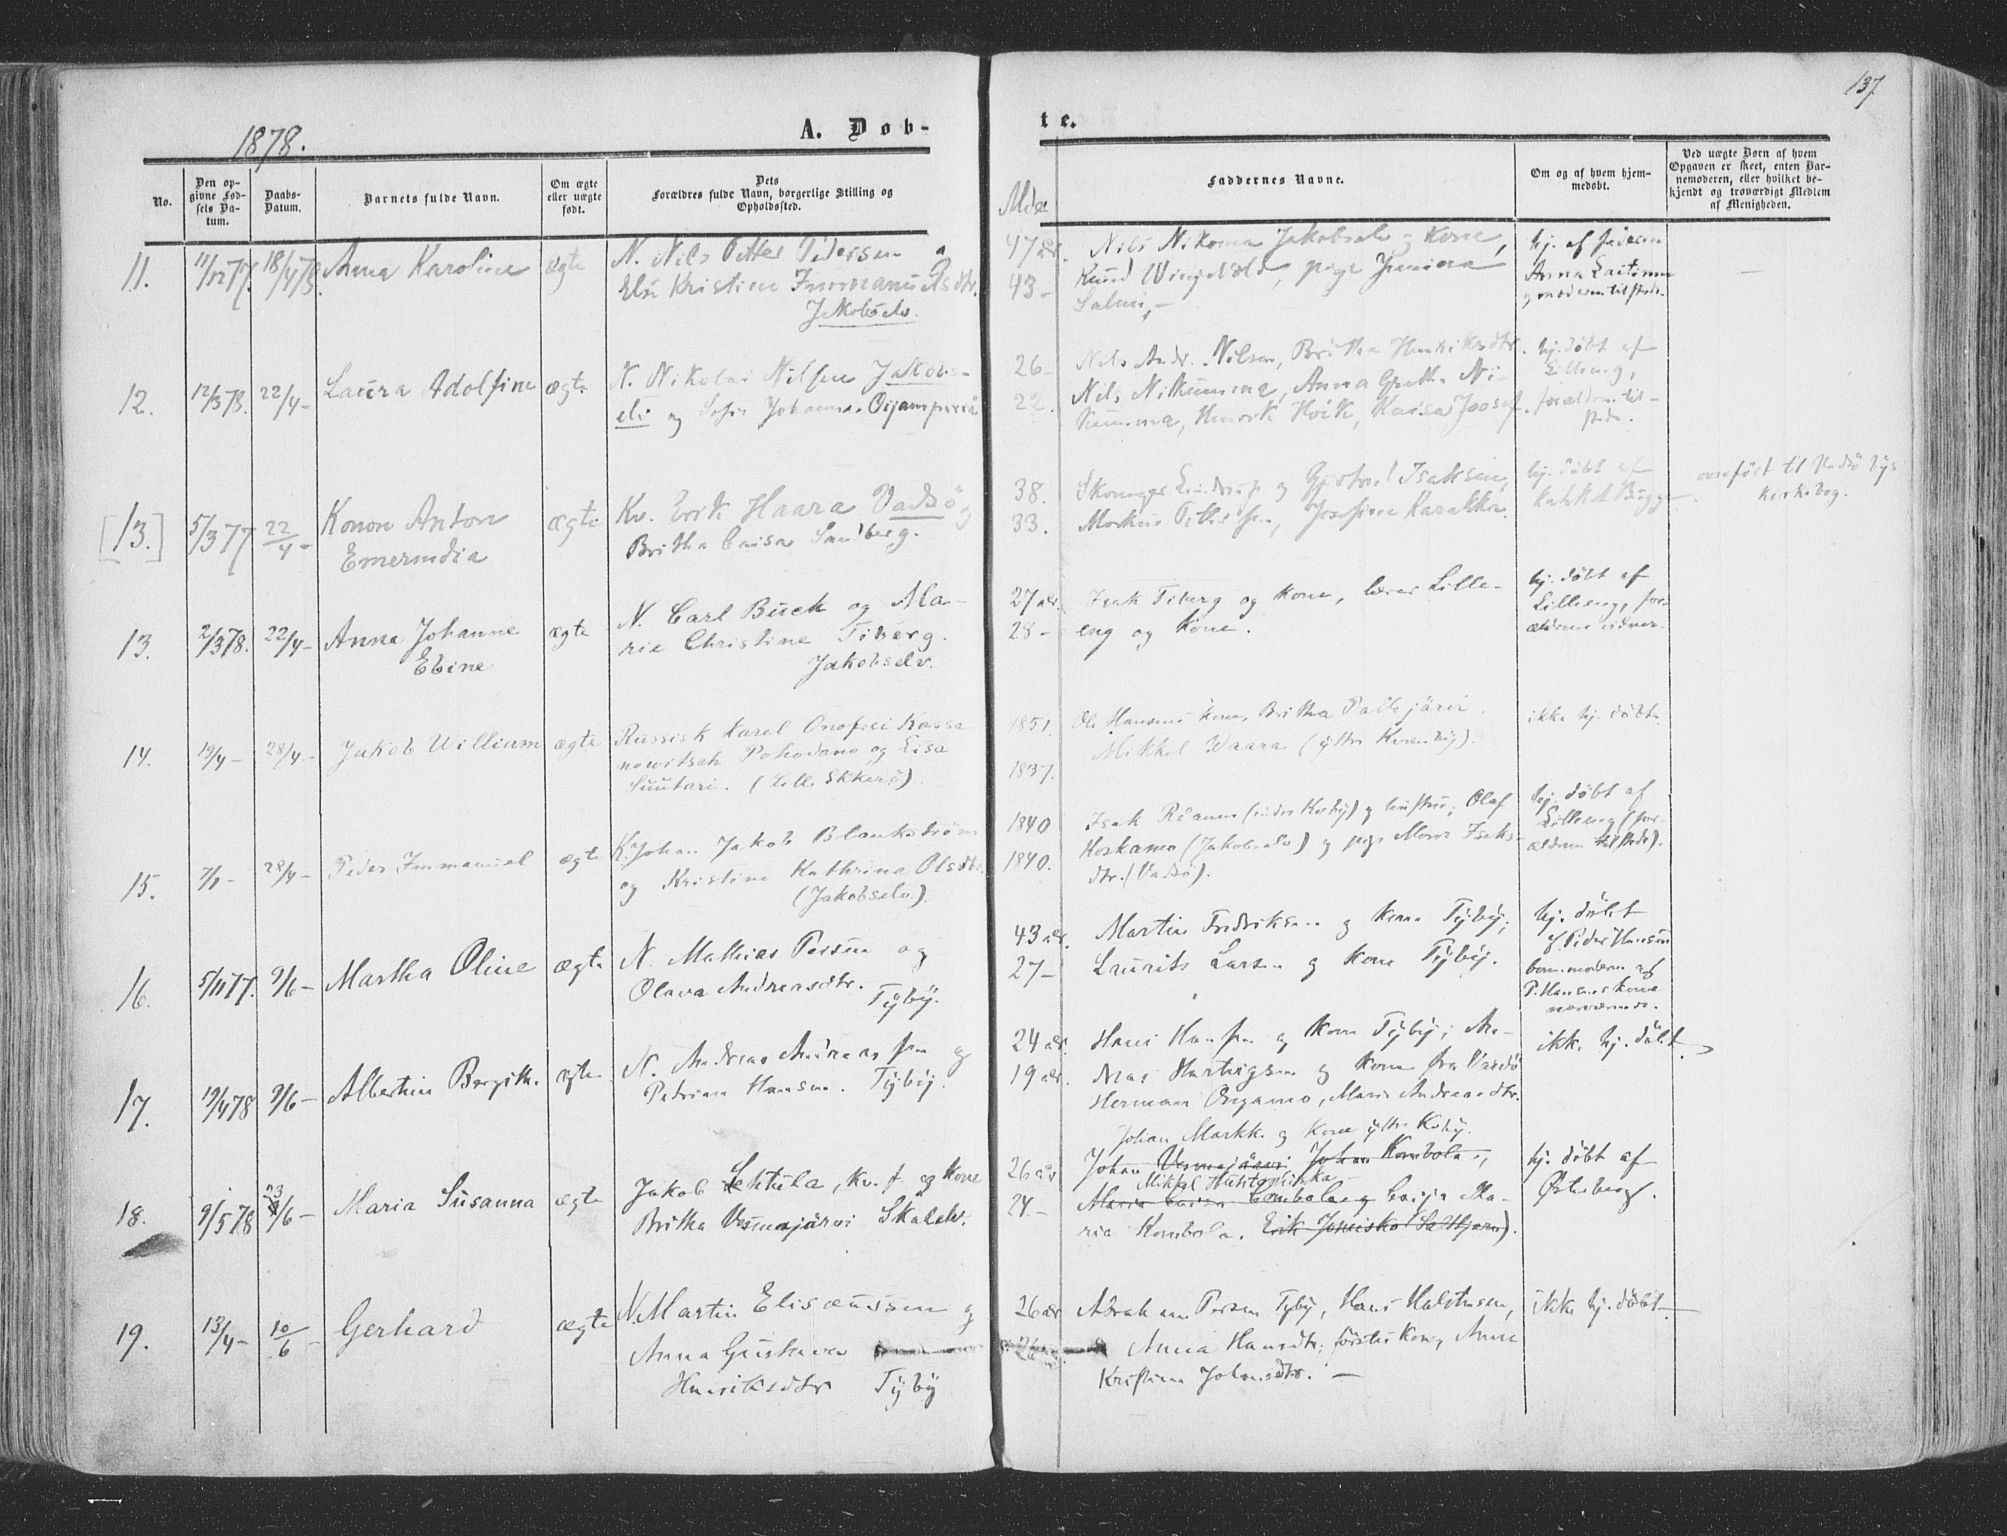 137
1878.
A. Döb-
te.
No.
Den op-
givne Fød-
sels Da-
tum.
Daabs-
Datum.
Barnets fulde Navn.
Om ægte
eller uægte
født.
Dets
Forældres fulde Navn, borgerlige Stilling og
Opholdssted.
Fadderness Navne.
Om og af hvem hjem-
medøbt.
Ved uægte Børn af hvem
Opgaven er skeet, enten Bar-
nemoderen, eller hvilket be-
kjendt og troværdigt Medlem
af Menigheden.
11. 11/12 77. 18/4 78. Anna Karoline ægte
N. Nils Petter Pedersen og
Else Kristine Immanuelsdtr.
Jakobselv.
47 år. Nils Nikoma Jakobselv og Kone,
43 - Knud Wingevold, pige
Salmi, -
hj. af
Anna
12. 12/3 78. 22/4 - Laura Adolfine ægte
N. Nikolai Nilsen Jakobs-
elv og Sofie Johanna
26 - Nils Andr. Nilsen, Britha Henriksdtr.
22. Nils Nikumma, Anna Greth. Ni-
kumma, Henrik Hoik, Kaisa Joosef.
hj. døbt af
Lilleeng,
forældrene til-
stede.
[13.] 5/3 77 22/4 - Konon Anton
Emerendia
ægte
Kv. Erik Haara Vadsö og
Britha Caisa Sandberg.
38. og Gjertrud Isaksen,
33. Markus Josefine Karakka.
hj. döbt af
overført til Vadsö bys
kirkebog.
13. 2/3 78. 22/4 - Anna Johanne
Ebine
ægte
N. Carl Buck og Ma-
rie Christine Tiberg.
Jakobselv.
27 år. Isak Tiberg og kone, lærer Lille-
28 - eng og Kone.
hj. döbt af
Lilleeng, for-
ældrene
14. 19/4 - 28/4 - Jakob William ægte
Russisk Karel Onofrei Kassa-
nowitsch Pohodano og Lisa
Suutari. (Lille Ekkerö).
1851. Ole Hansens kone, Britha Pallojärvi.
Mikkel Waara (ytter Kvenby).
1837.
ikke hj. döbt.
15. 28/4 - Peder Immanuel ægte
K. Johan Jakob Blankström
og Kristine Kathrina Olsdtr.
(Jakobselv).
1840 Isak og hustru; Olaf
1840. Horkamo (Jakobselv) og pige Isaks-
dtr. (Vadsö).
hj. döbt af
Lilleeng (for-
ældrene tilstede).
16. 5/11 77. 9/6 - Martha Oline ægte
N. Mathias Persen og
Olava Andreasdtr.
Tyby.
43 år. Martin Fredriksen og kone Tyby;
27 - Laurits Larsen og kone Tyby.
hj. döbt
af Peder Hansen
barnemoderen og
P. Hansens kone
nærværende.
17. 19/4 78 9/6 - Albertine Bergith. ægte
N. Andreas Andreassen og
Pedrine Hansen. Tyby.
24 år. Hans Hansen og kone Tyby; An-
19 år. dreas Hartvigsen og kone fra Vardö
Herman Ongamo, Marie Andreasdtr.
ikke hj. döbt.
18. 9/5 78 23/6 - Maria Susanna ægte
Jakob Lehtula, kv. f. og kone
Britha Vesmajärvi Skalelv.
Johan Markk. og kone ytter Kvby.
26 år Johan Vesmajärvi Johan Kombola,
Mikkel
24. - Maria Caisa Kombola og Caisa Ma-
ria Kombola. Erik
hj. döbt af
Österberg.
19. 13/4 - 10/6 - Gerhard ægte
N. Martin Elisæussen og
Anna Gustava
Henriksdtr Tyby
26 år Abraham Persen Tyby, Hans Halvorsen,
26 Anna Hansdtr, förstes kone, Anne
Kristine Johnsdtr. -
ikke hj. döbt.